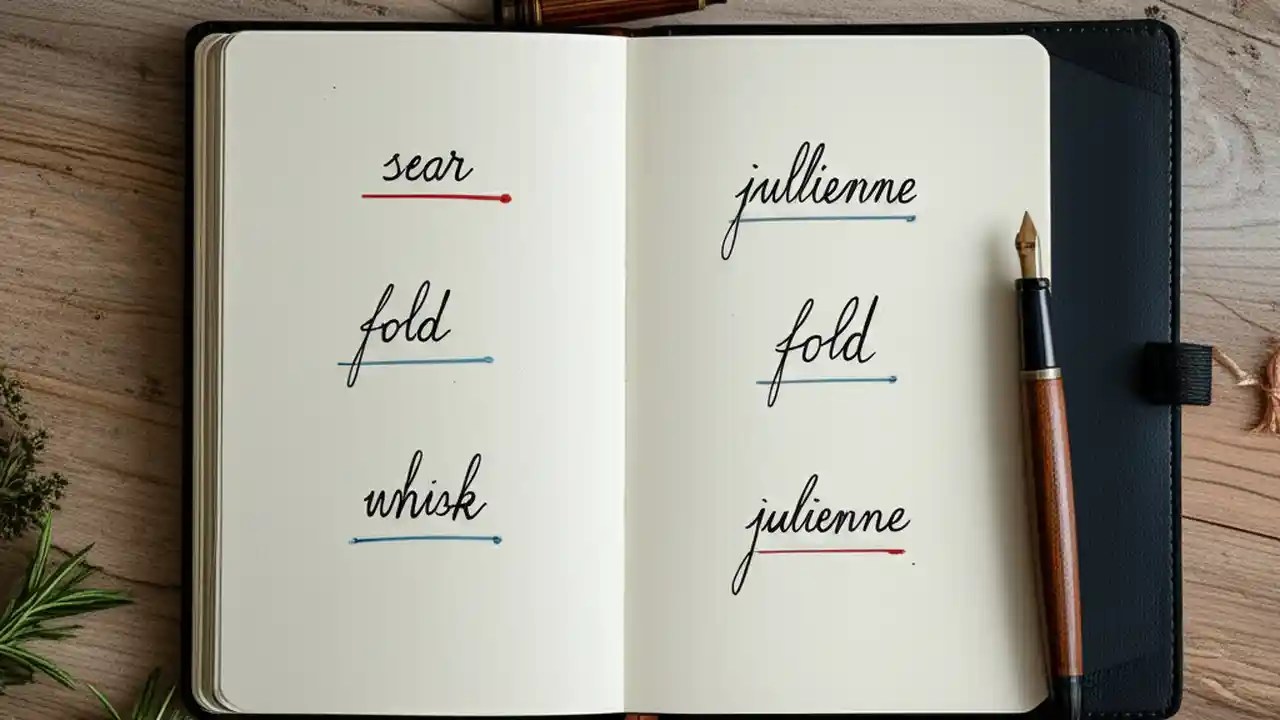 sear
fold
whisk
jullienne
fold
julienne